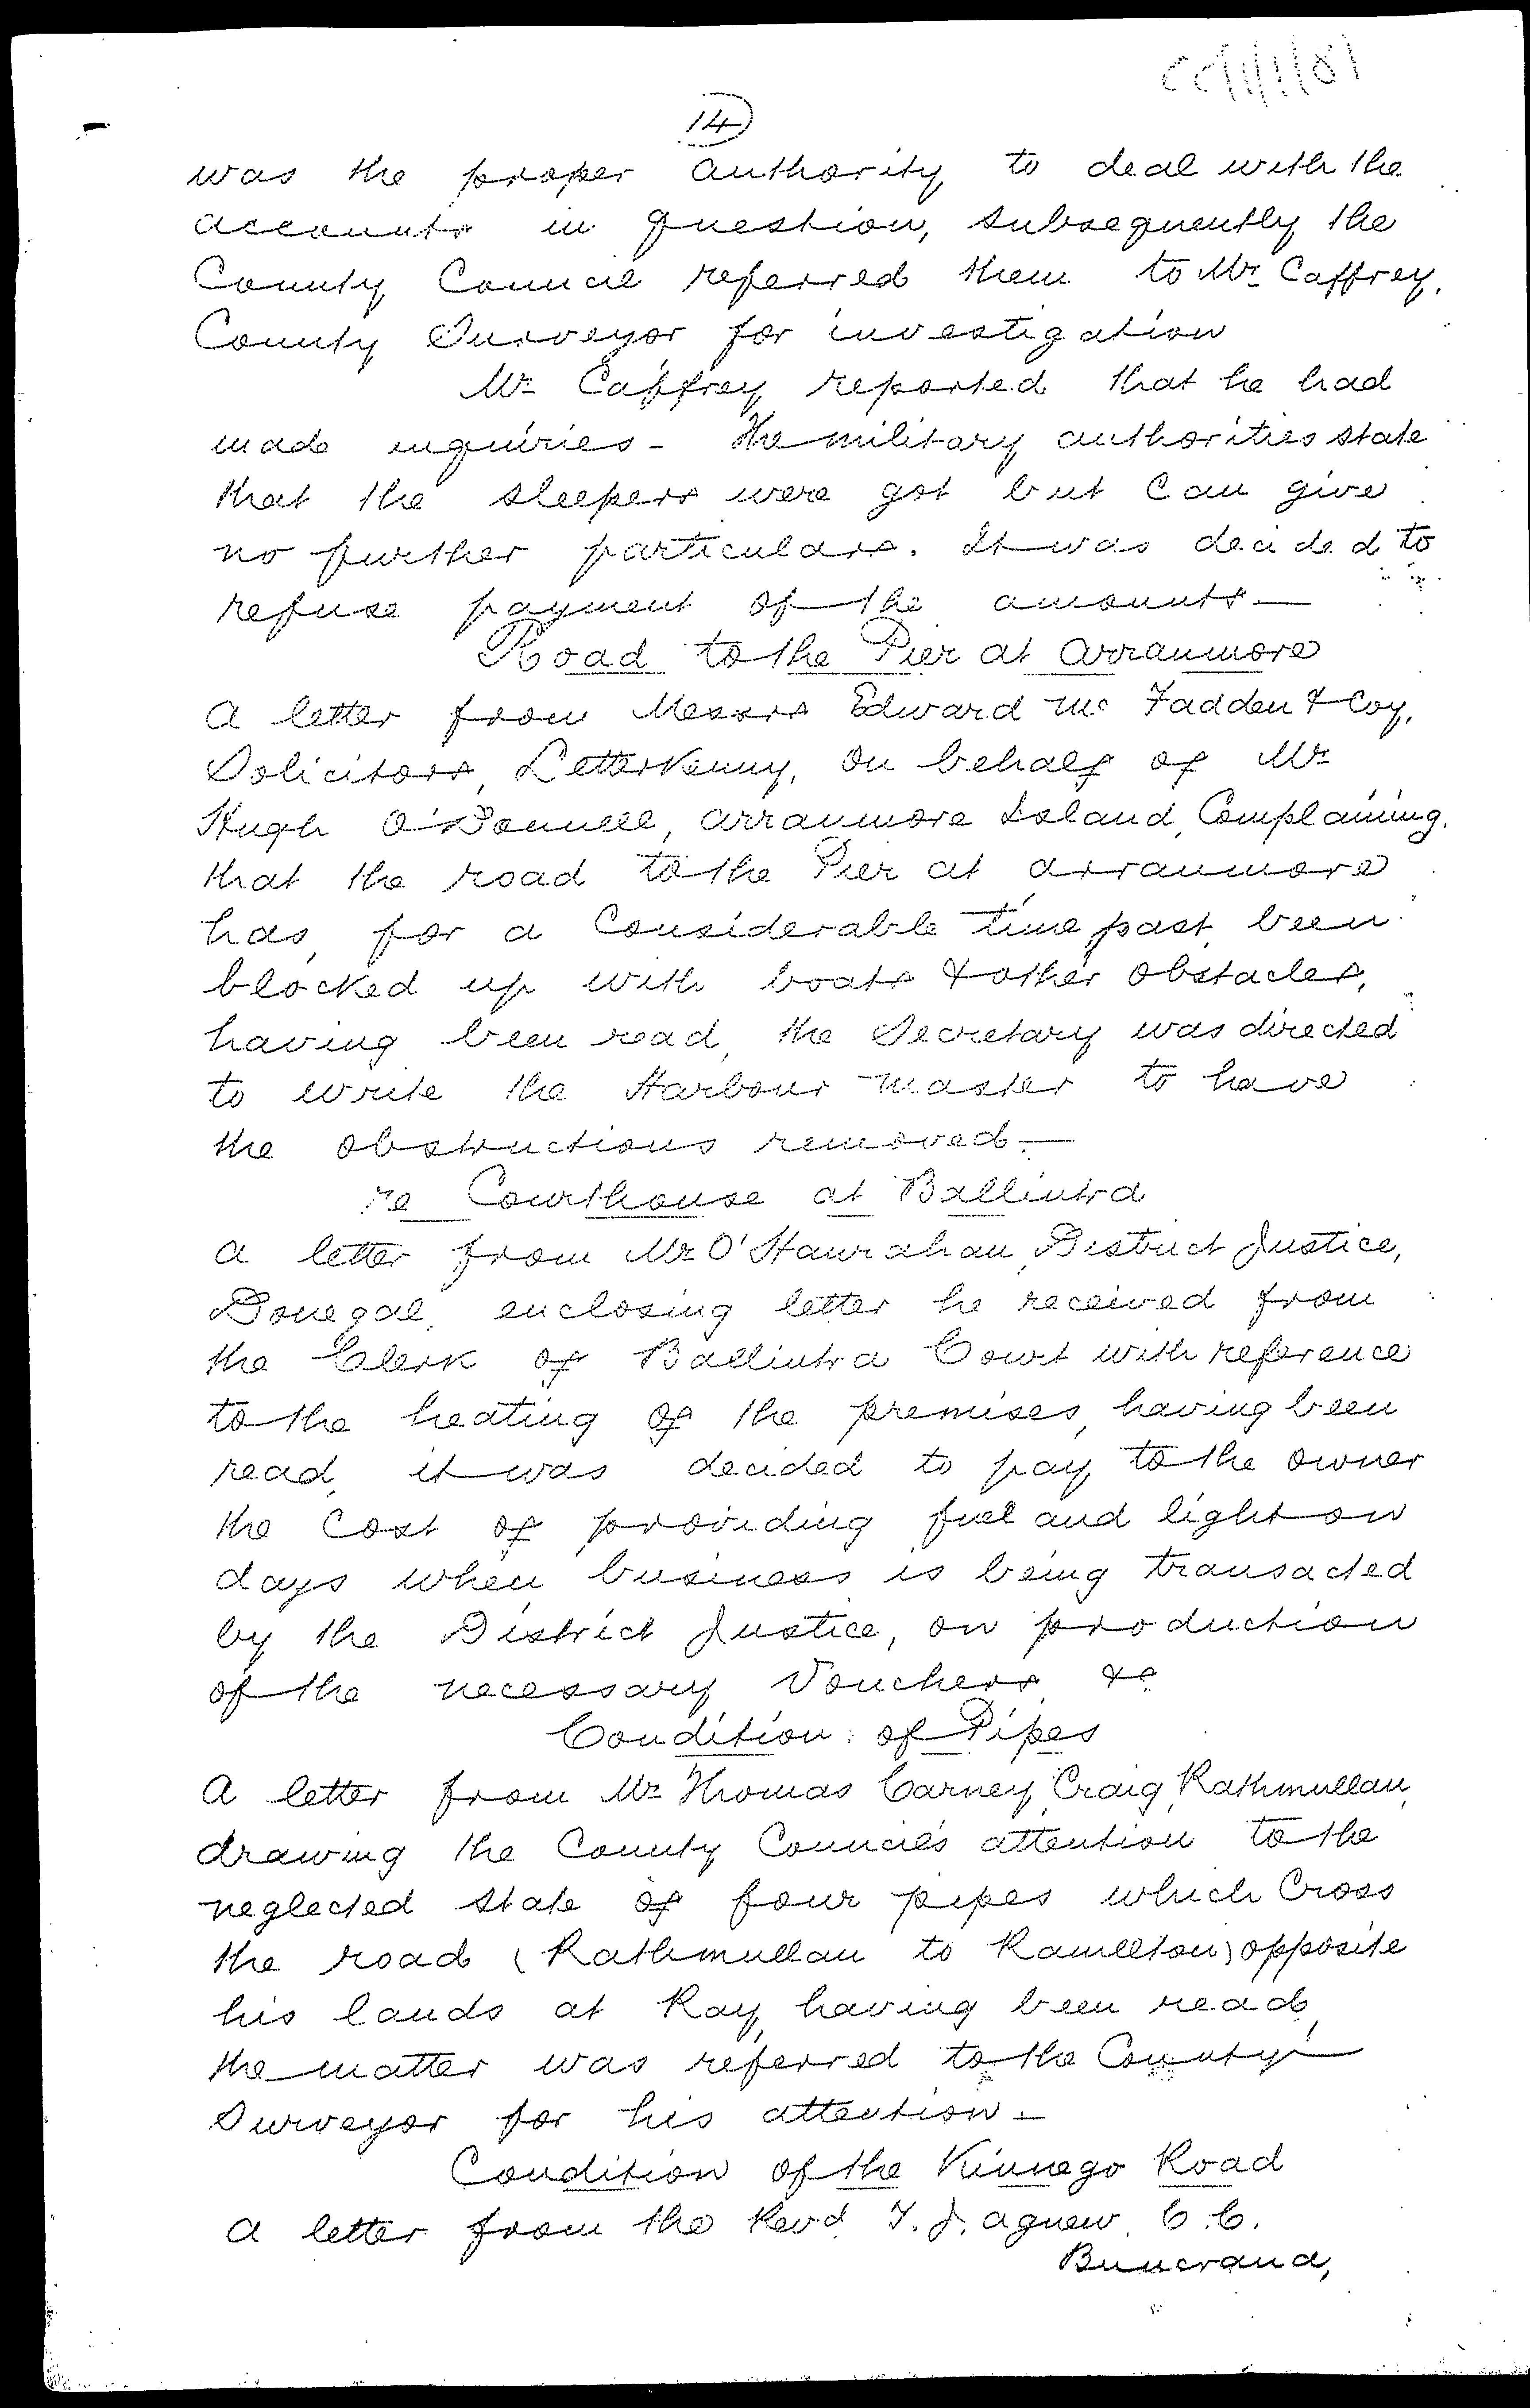 CC/1/1/81
14
was the proper authority to deal with the
accounts in question, subsequently the
County Council referred them to Mr Caffrey,
County Surveyor for investigation
Mr Caffrey reported that he had
made inquiries - The military authorities state
that the sleepers were got but can give
no further particulars. It was decided to
refuse payment of the amounts -
Road to the Pier at Arranmore
A letter from Messrs Edward Mc Fadden & Coy,
Solicitors, Letterkenny, on behalf of Mr
Hugh O'Donnell, Arranmore Island, Complaining
that the road to the Pier at Arranmore
has, for a Considerable time past, been
blocked up with boats & other obstacles,
having been read, the Secretary was directed
to write the Harbour Master to have
the obstructions removed -
re Courthouse at Ballintra
A letter from Mr O'Hanrahan, District Justice,
Donegal, enclosing letter he received from
the Clerk of Ballintra Court with reference
to the heating of the premises, having been
read, it was decided to pay to the owner
the Cost of providing fuel and light on
days when business is being transacted
by the District Justice, on production
of the necessary Vouchers &c
Condition of Pipes
A letter from Mr Thomas Carney, Craig, Rathmullan,
drawing the County Council's attention to the
neglected state of four pipes which Cross
the road (Rathmullan to Ramelton) opposite
his lands at Ray, having been read,
the matter was referred to the County
Surveyor for his attention -
Condition of the Kinnego Road
A letter from the Revd. T. J. Agnew C.C.
Buncrana,